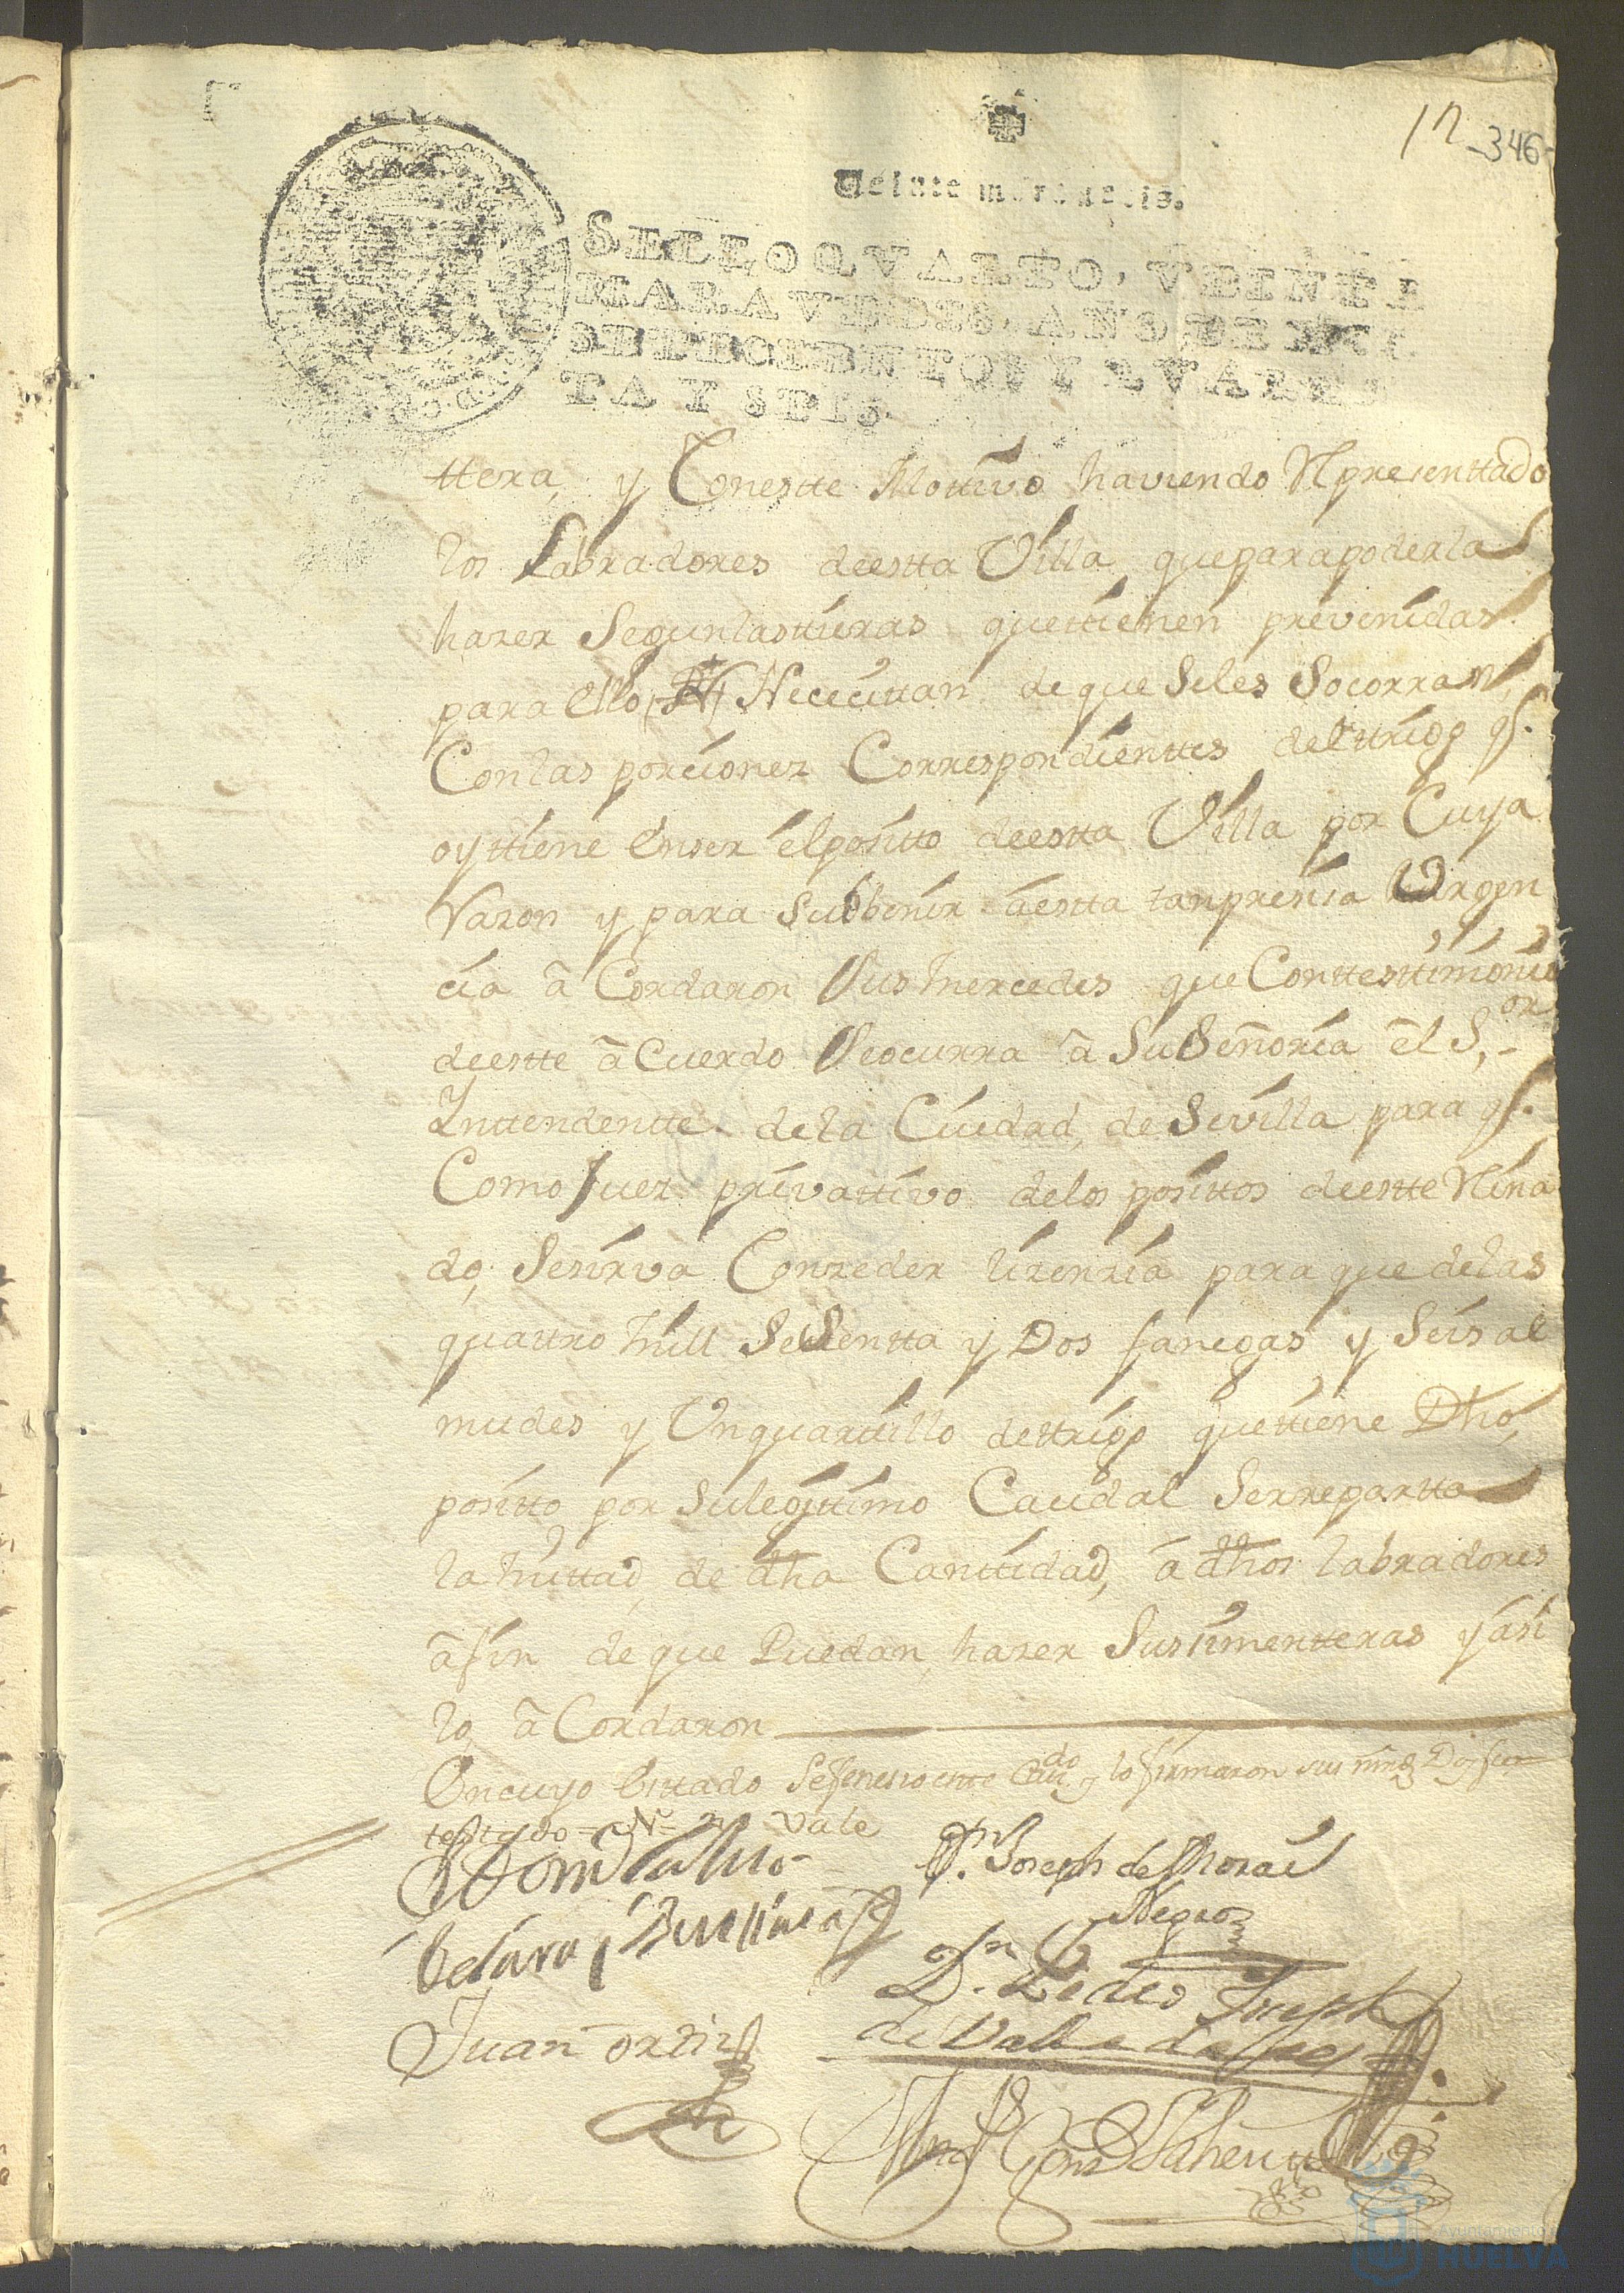 17 -346-
Veinte maravedis.
SELLO QVARTO, VEINTE
MARAVEDIS, AÑO DE MIL
SETECIENTOS Y QVAREN
TA Y SEIS.
ttera, y Conestte Mottivo haviendo Representtado
los Labradores deestta Villa, queparapoderlas
hazer Segunlasttierras quettienen prevenidas
para ello Nececittan de que Seles Socorran,
Conlas porcionez Correspondienttes delttrigo q.
oyttiene Enser elposito deestta Villa por Cuya
Razon y para Subbenir âestta tanpresisa Urgen
cia â Cordaron Sus Mercedes que Conttesttimonio
deestte â Cuerdo Seocurra â SuSeñoria êl S.or
Inttendentte de la Ciudad, de Sevilla para q.
Como Juez privattivo delos posittos deestte Reina
do, Sesirva Conzeder lizenzia para que delas
quattro Mill Sesentta y Dos fanegas y Seis al
mudes y Unquarttillo dettrigo quettiene Dho,
positto por Sulegittimo Caudal Serrepartta
la Mittad, de dha Canttidad, â dhos labradores
âfin de que Puedan, hazer Sussimentteras y âsi
lo, â Cordaron
Encuyo Esttado Sefenesio este Cav.do y lo firmaron sus mrds Doi fee
testado = N = Vale
D.n Joseph de Moral
Negro
Juan ortiz
D.n Pedro Joseph
de Valledares